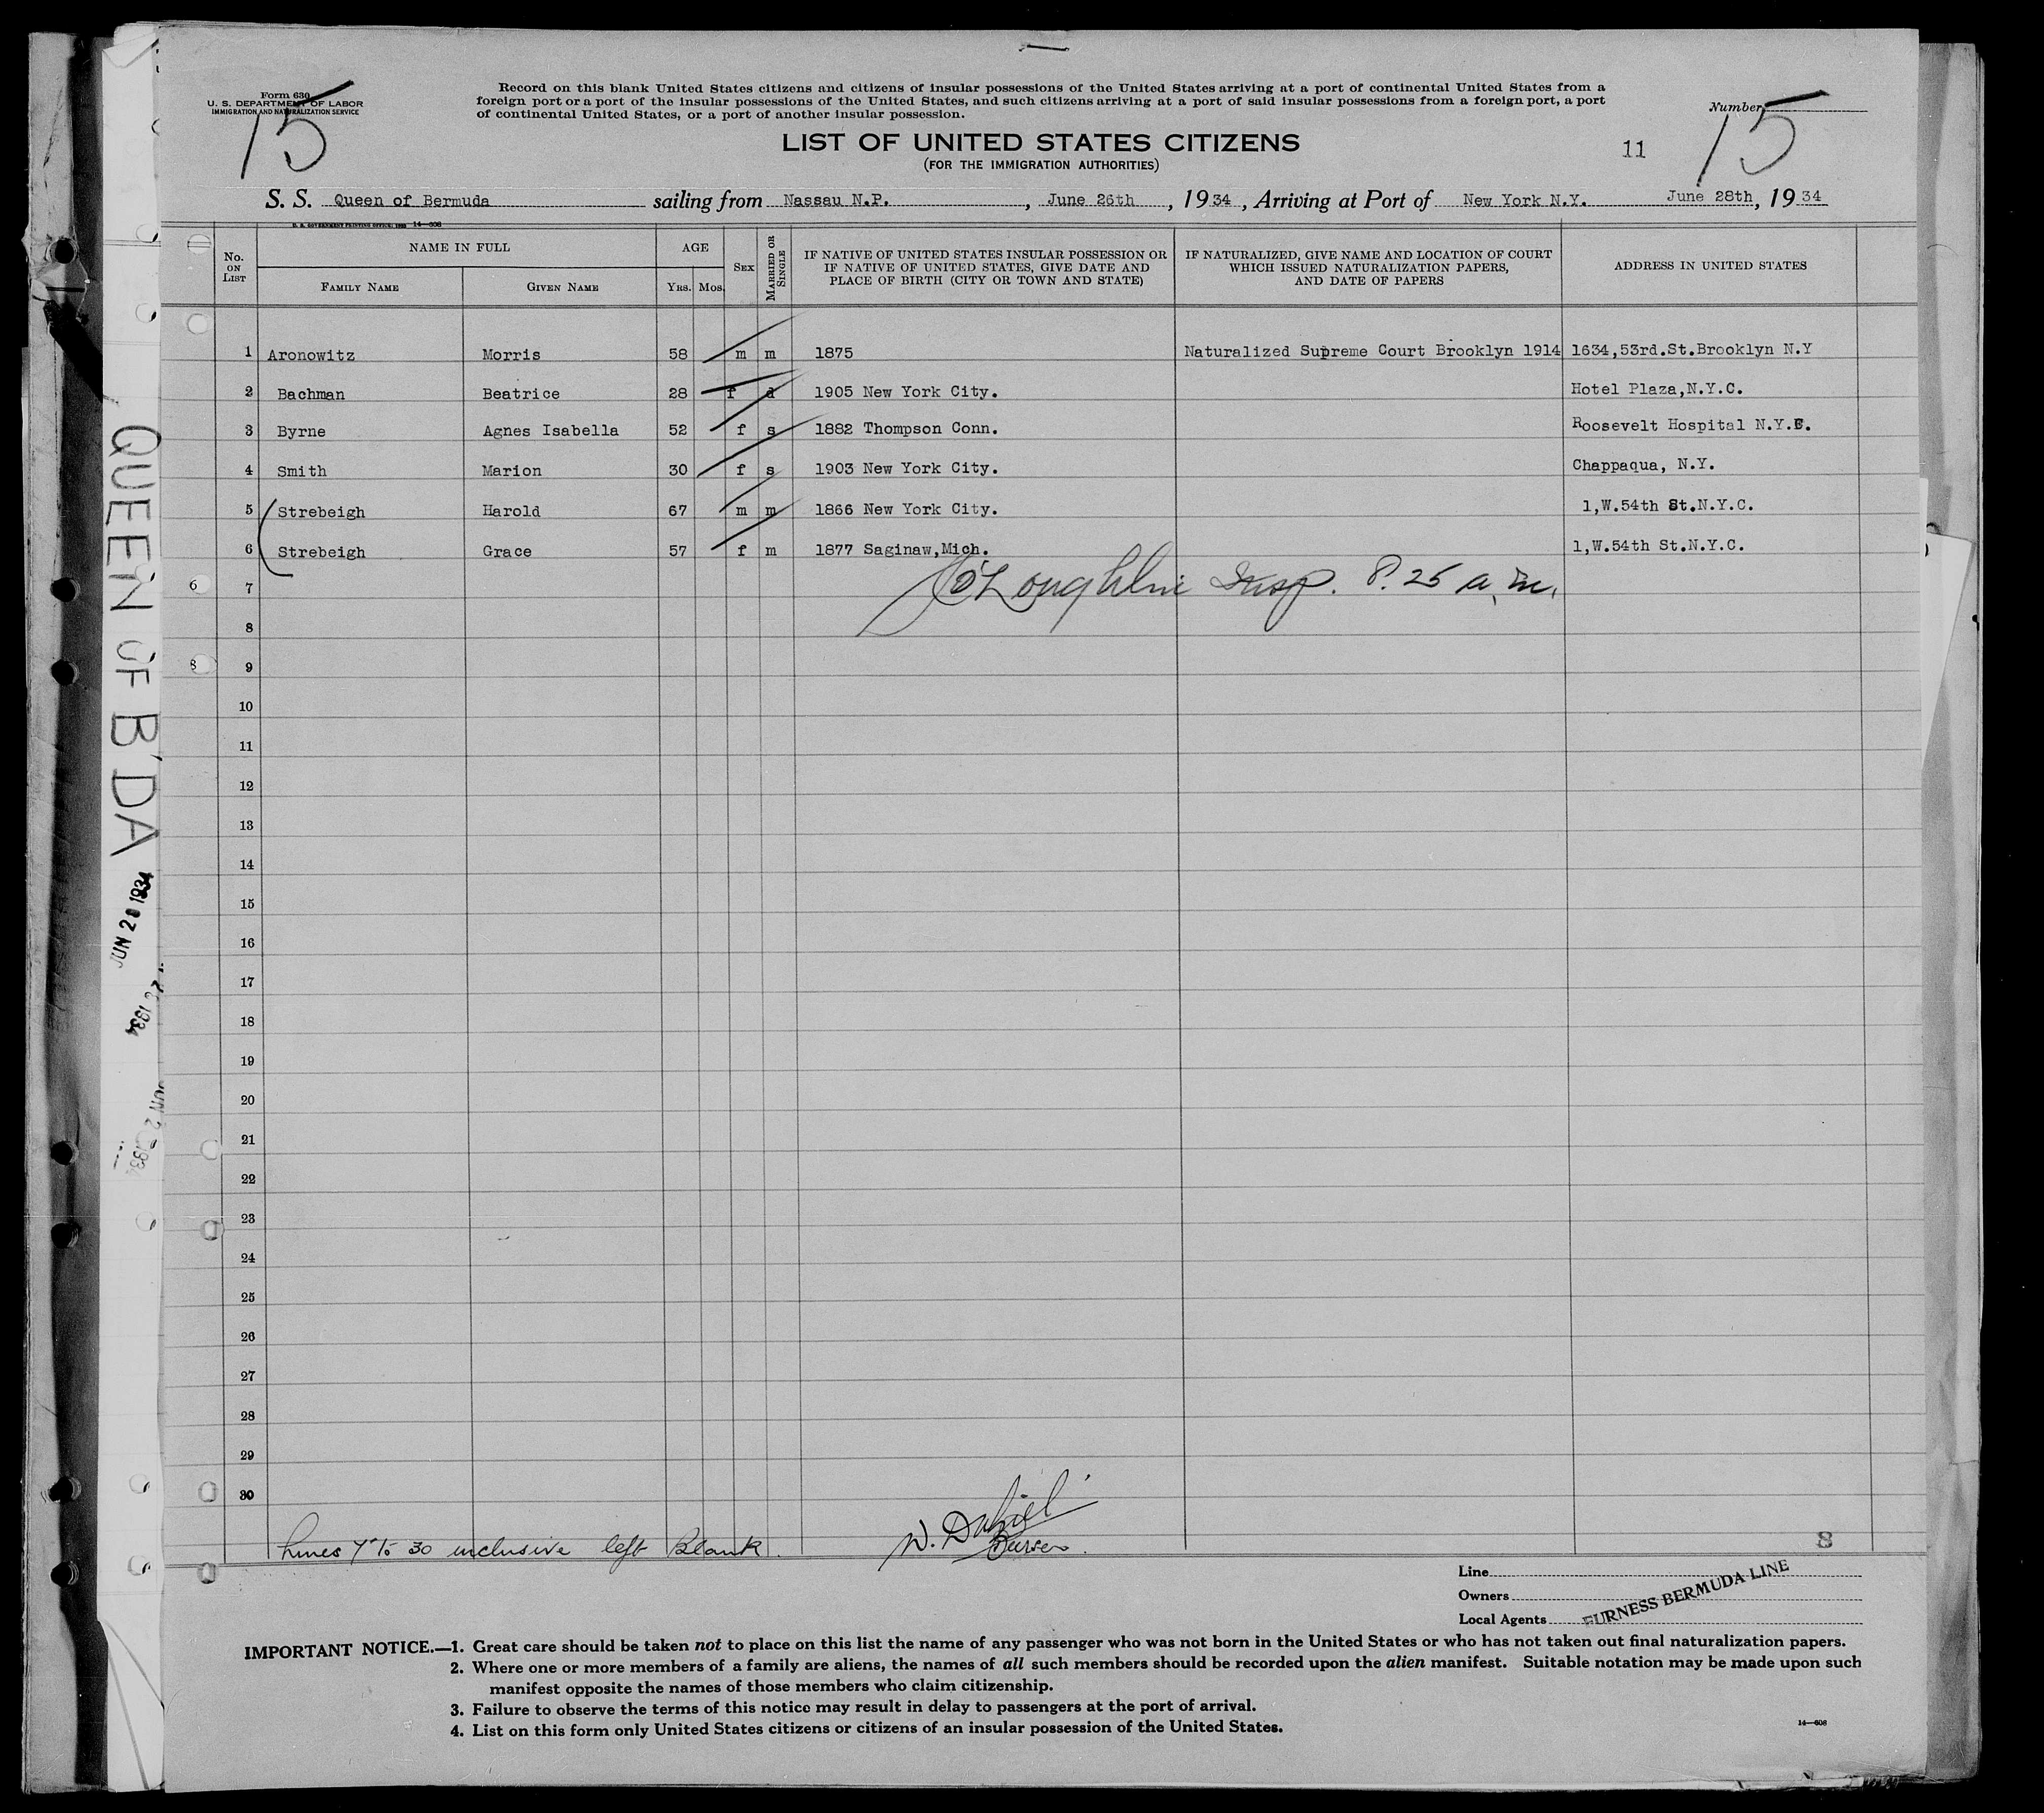 Form 630
U. S. DEPARTMENT OF LABOR
IMMIGRATION AND NATURALIZATION SERVICE
15
Record on this blank United States citizens and citizens of insular possessions of the United States arriving at a port of continental United States from a
foreign port or a port of the insular possessions of the United States, and such citizens arriving at a port of said insular possessions from a foreign port, a port
of continental United States, or a port of another insular possession.
Number
15
LIST OF UNITED STATES CITIZENS
11
(FOR THE IMMIGRATION AUTHORITIES)
S. S. Queen of Bermuda sailing from Nassau N.P. , June 26th , 1934 , Arriving at Port of New York N.Y. June 28th, 1934
U. S. GOVERNMENT PRINTING OFFICE: 14—608
No. ON LIST NAME IN FULL FAMILY NAME GIVEN NAME AGE YRS. MOS. SEX MARRIED OR SINGLE IF NATIVE OF UNITED STATES INSULAR POSSESSION OR IF NATIVE OF UNITED STATES, GIVE DATE AND PLACE OF BIRTH (CITY OR TOWN AND STATE) IF NATURALIZED, GIVE NAME AND LOCATION OF COURT WHICH ISSUED NATURALIZATION PAPERS, AND DATE OF PAPERS ADDRESS IN UNITED STATES
1 Aronowitz Morris 58 m m 1875 Naturalized Supreme Court Brooklyn 1914 1634,53rd.St.Brooklyn N.Y
2 Bachman Beatrice 28 f d 1905 New York City. Hotel Plaza,N.Y.C.
3 Byrne Agnes Isabella 52 f s 1882 Thompson Conn. Roosevelt Hospital N.Y.C.
4 Smith Marion 30 f s 1903 New York City. Chappaqua, N.Y.
5 Strebeigh Harold 67 m m 1866 New York City. 1,W.54th St.N.Y.C.
6 Strebeigh Grace 57 f m 1877 Saginaw,Mich. 1,W.54th St.N.Y.C.
6 7 O'Loughlin Insp. 8.25 a.m.
8
8 9
10
11
12
13
14
15
16
17
18
19
20
21
22
23
24
25
26
27
28
29
30
Lines 7 to 30 inclusive left Blank. W. Daniel Purser.
8
Line
Owners
Local Agents
FURNESS BERMUDA LINE
IMPORTANT NOTICE.—1. Great care should be taken not to place on this list the name of any passenger who was not born in the United States or who has not taken out final naturalization papers.
2. Where one or more members of a family are aliens, the names of all such members should be recorded upon the alien manifest. Suitable notation may be made upon such
manifest opposite the names of those members who claim citizenship.
3. Failure to observe the terms of this notice may result in delay to passengers at the port of arrival.
4. List on this form only United States citizens or citizens of an insular possession of the United States.
14—608
QUEEN OF B'DA
JUN 28 1934